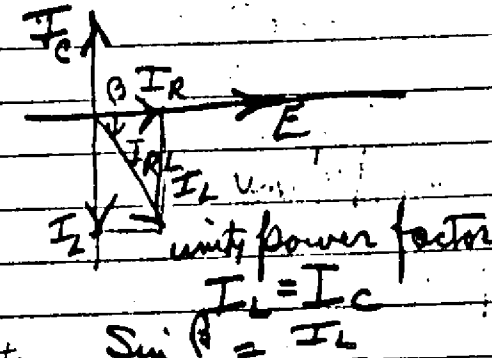 I_C
β I_R
E
I_RL
I_L
I_L
unity power factor
I_L = I_C
Sin β = I_L